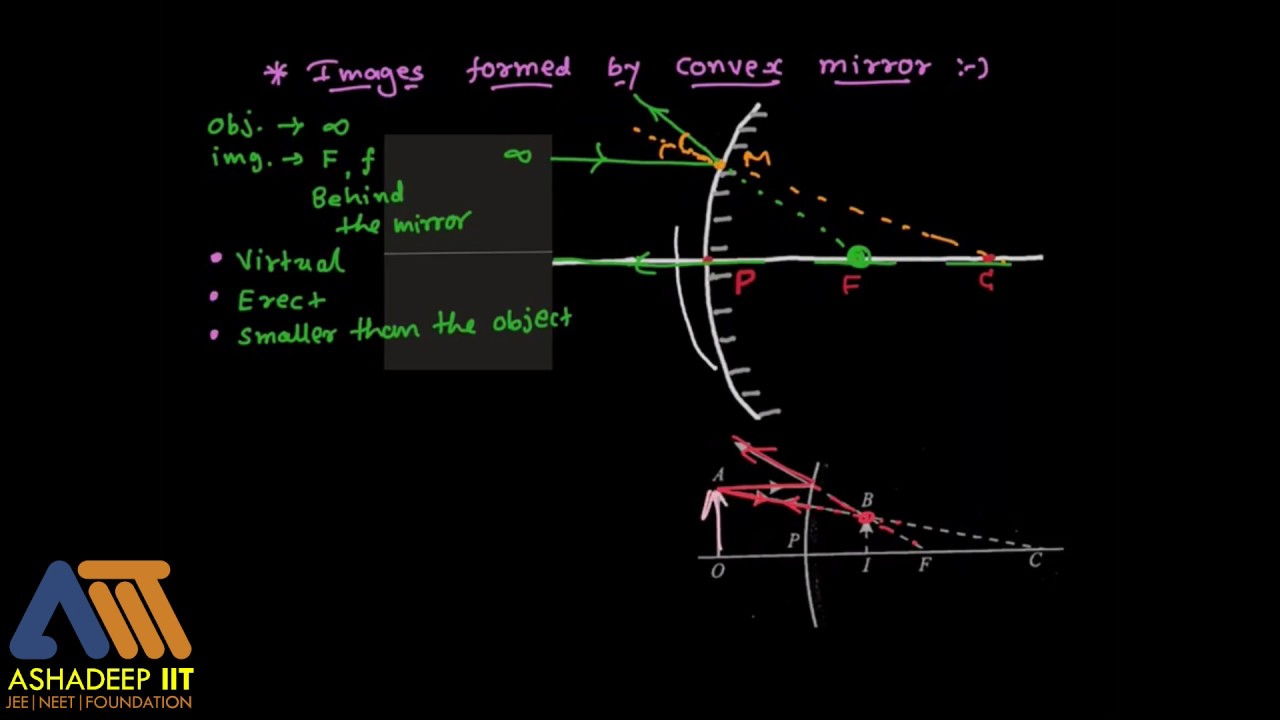 * Images formed by convex mirror :-)
Obj. → ∞
img. → F, f
Behind
the mirror
• Virtual
• Erect
• Smaller than the object
∞
r
i
M
P
F
C
A
B
P
O
I
F
C
ASHADEEP IIT
JEE|NEET|FOUNDATION